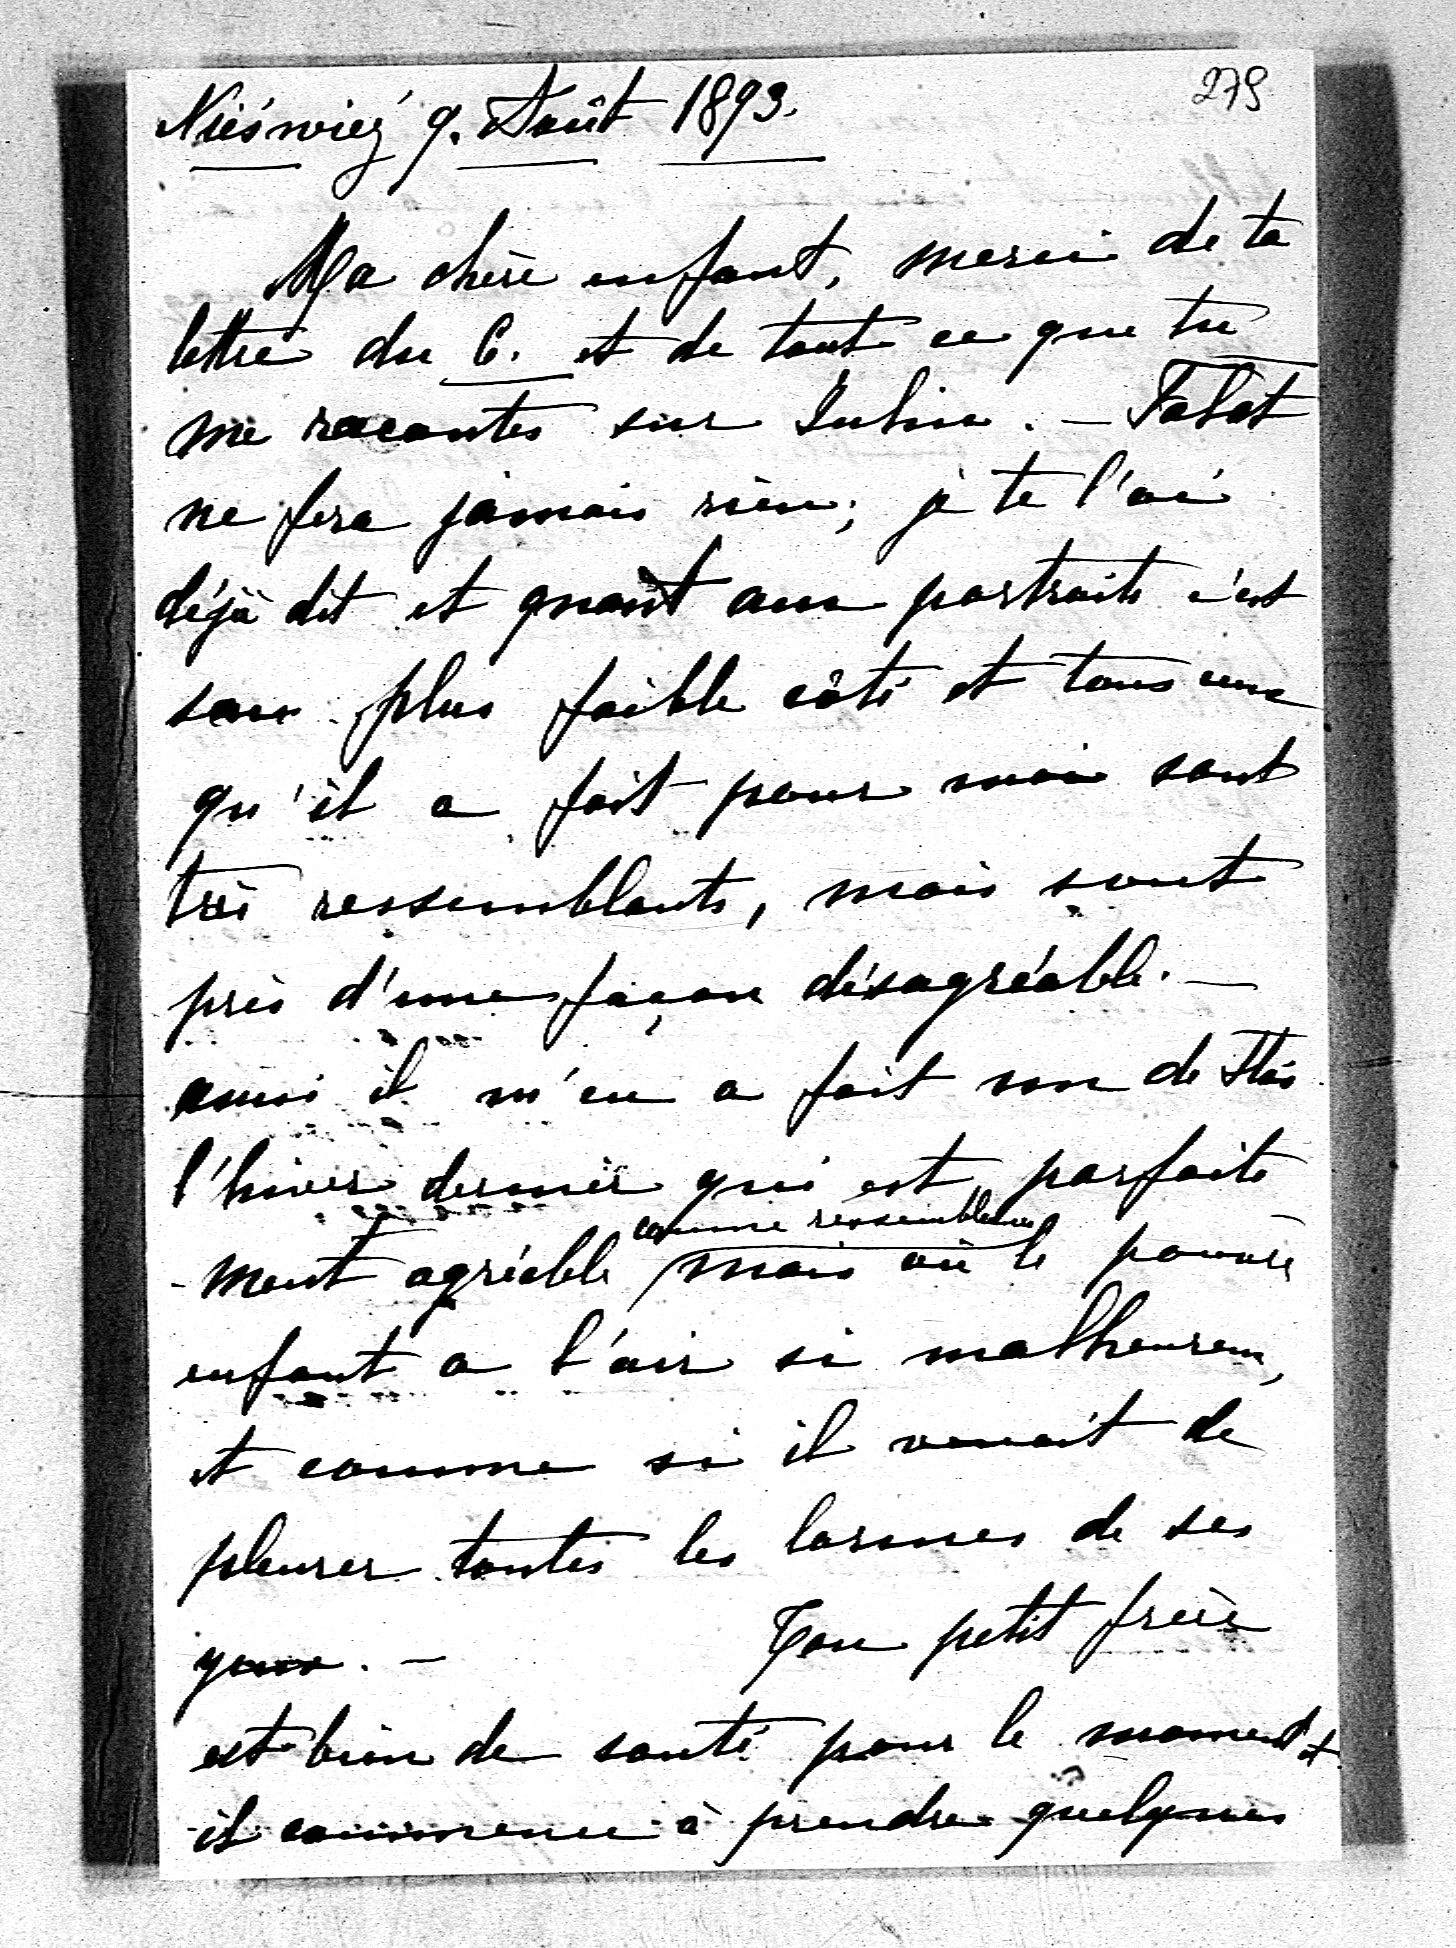 279
Nieśwież 9. Août 1893.
Ma chère enfant, merci de ta
lettre du 6. et de tout ce que tu
me racontes sur Julien. — Falat
ne fera jamais rien; je te l'ai
déjà dit et quant aux portraits c'est
son plus faible côté et tous ceux
qu'il a fait pour moi sont
très ressemblants, mais sont
pris d'une façon désagréable. —
aussi il m'en a fait un de Stas
l'hiver dernier qui est parfaite
-ment agréable comme ressemblance mais où le pauvre
enfant a l'air si malheureux,
et comme si il venait de
pleurer toutes les larmes de ses
yeux. — Ton petit frère
est bien de santé pour le moment et
il commence à prendre quelques